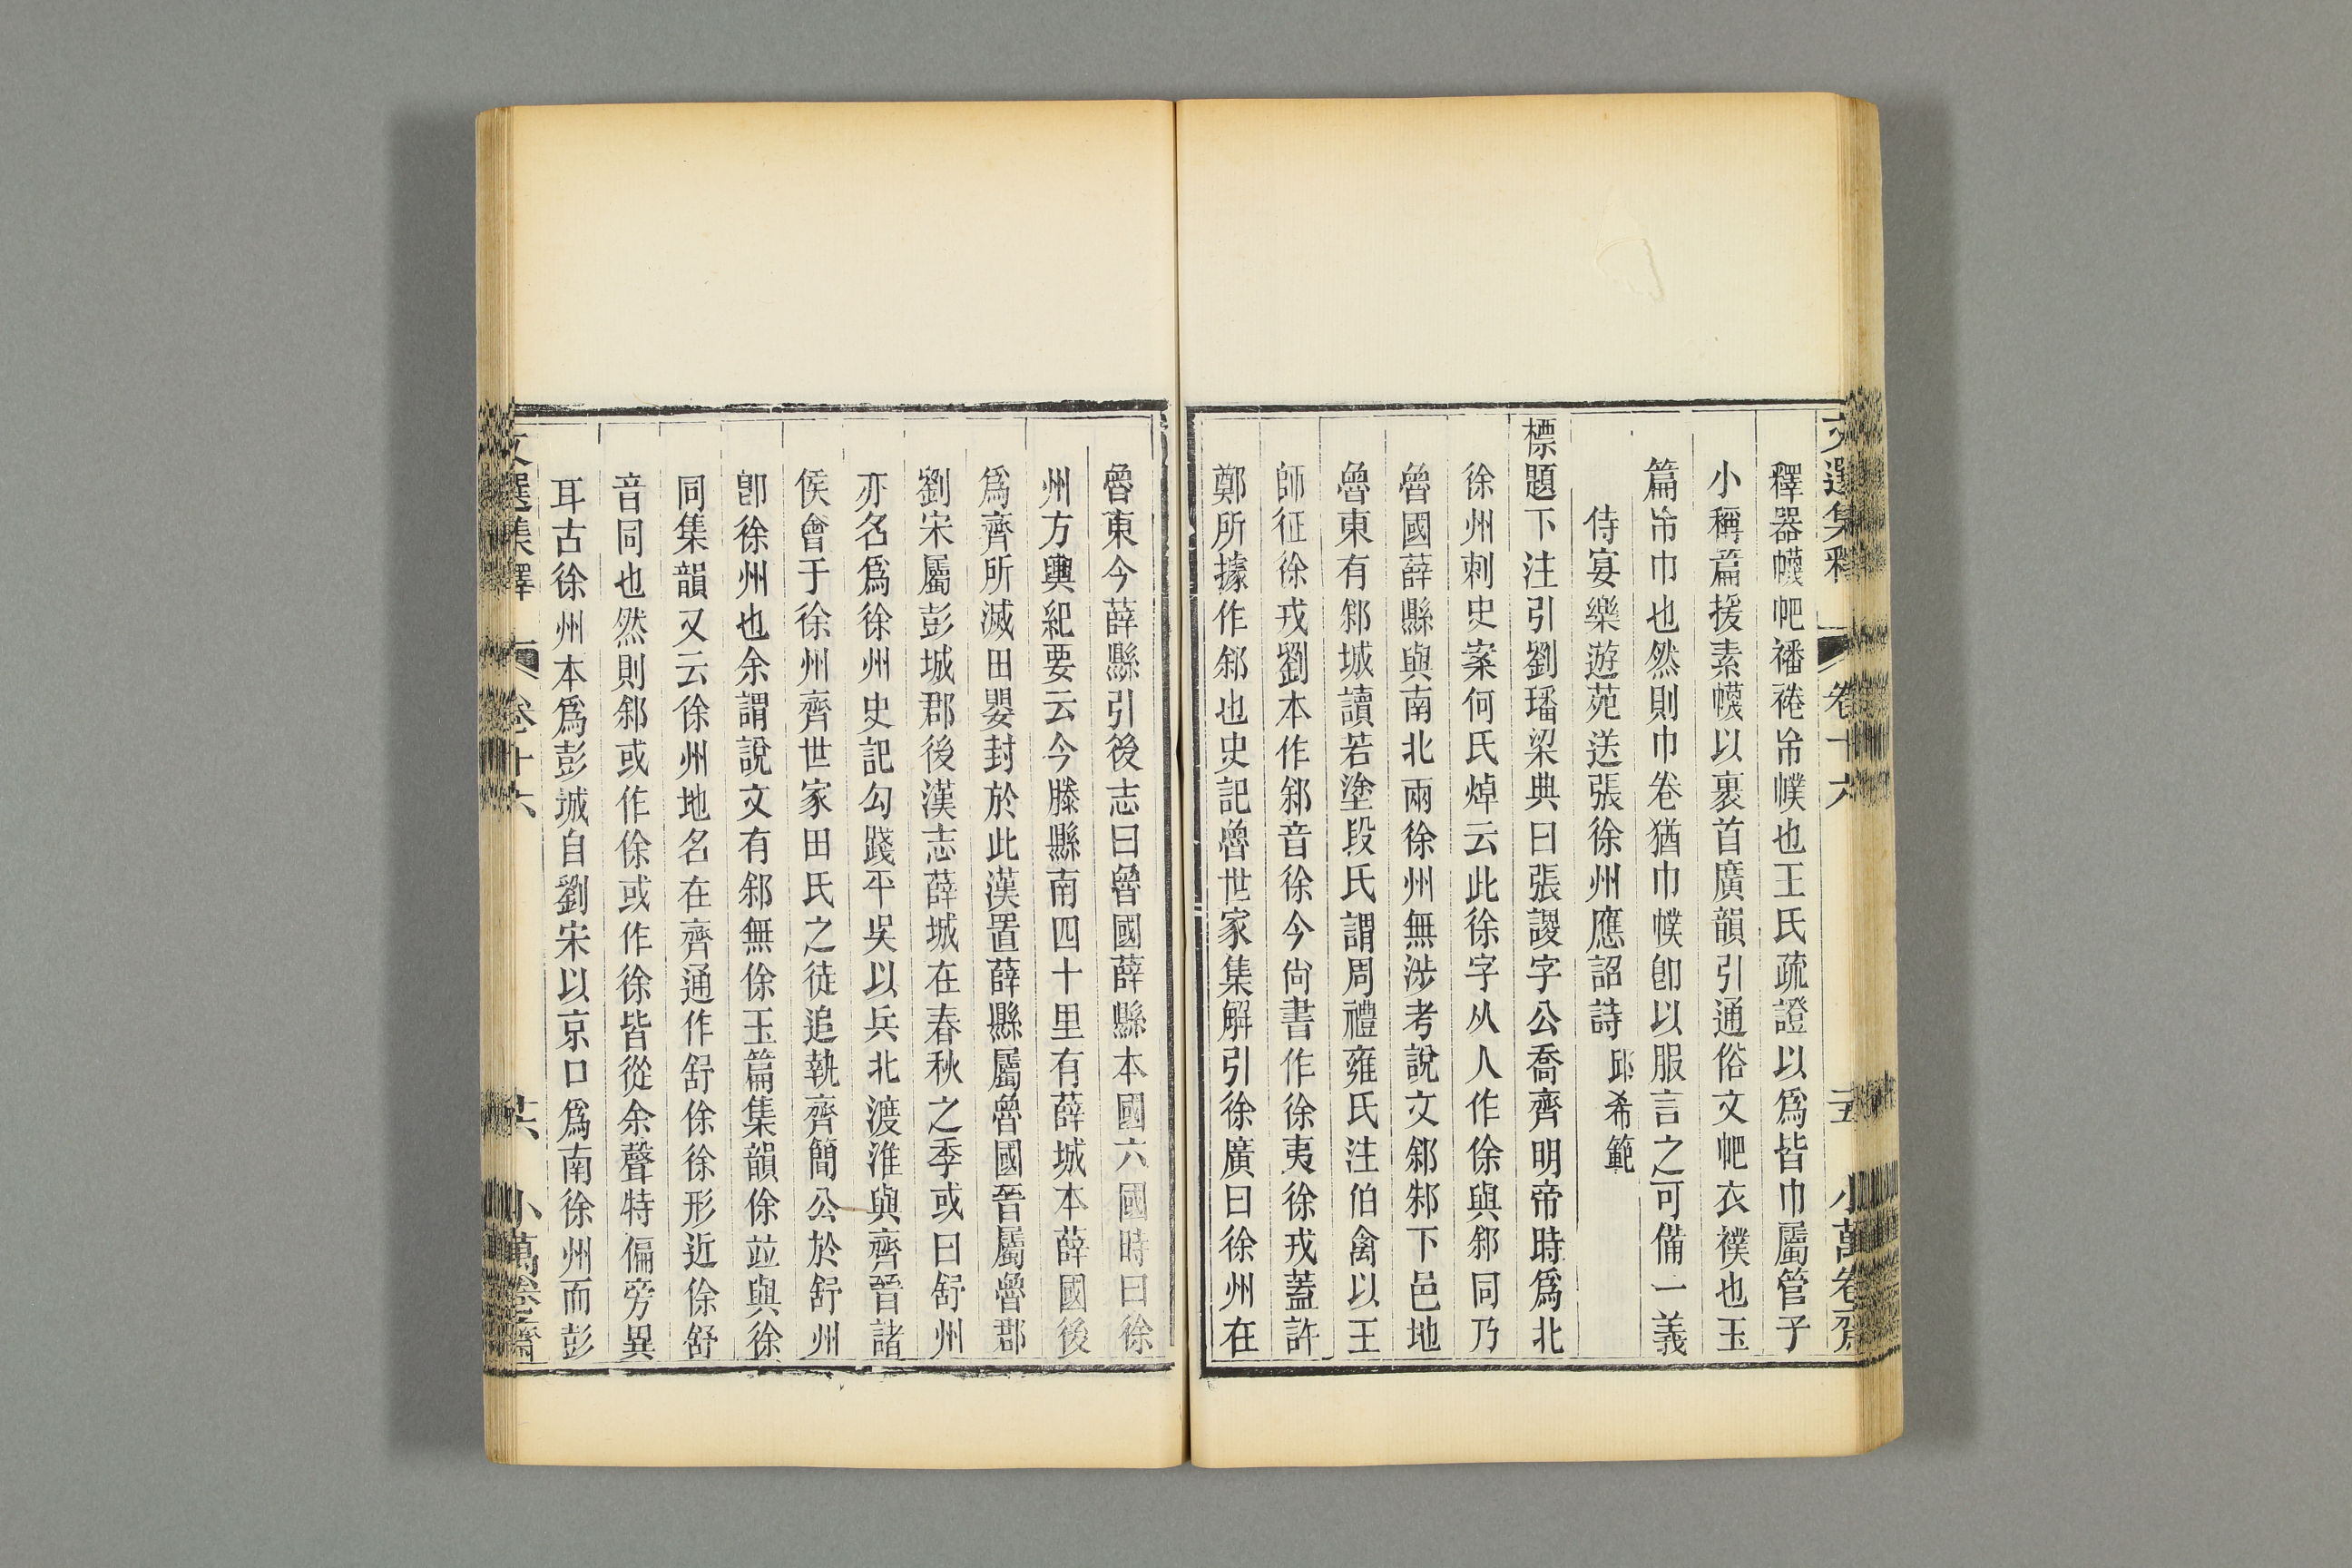 文選集釋 卷十六 五 小萬卷齋
釋器幭帊襎裷帤幞也王氏疏證以爲皆巾屬管子
小稱篇援素幭以裹首廣韻引通俗文帊衣襆也玉
篇帤巾也然則巾卷猶巾幞卽以服言之可備一義
侍宴樂遊苑送張徐州應詔詩 邱希範
標題下注引劉璠梁典曰張謖字公喬齊明帝時爲北
徐州刺史案何氏焯云此徐字从人作俆與䣄同乃
魯國薛縣與南北兩徐州無涉考說文䣄邾下邑地
魯東有䣄城讀若塗段氏謂周禮雍氏注伯禽以王
師征徐戎劉本作䣄音徐今尙書作徐夷徐戎蓋許
鄭所據作䣄也史記魯世家集解引徐廣曰徐州在
魯東今薛縣引後志曰魯國薛縣本國六國時曰徐
州方輿紀要云今滕縣南四十里有薛城本薛國後
爲齊所滅田嬰封於此漢置薛縣屬魯國晉屬魯郡
劉宋屬彭城郡後漢志薛城在春秋之季或曰舒州
亦名爲徐州史記勾踐平吳以兵北渡淮與齊晉諸
侯會于徐州齊世家田氏之徒追執齊簡公於舒州
卽徐州也余謂說文有䣄無俆玉篇集韻俆竝與徐
同集韻又云徐州地名在齊通作舒俆徐形近俆舒
音同也然則䣄或作俆或作徐皆從余聲特偏旁異
耳古徐州本爲彭城自劉宋以京口爲南徐州而彭
文選集釋 卷十六 六 小萬卷齋